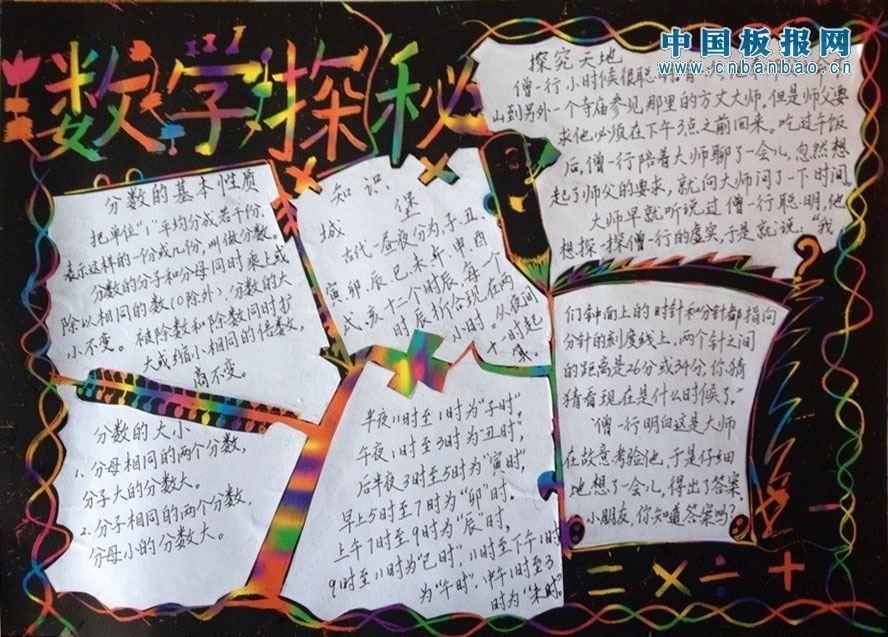 数学探秘
中国板报网
www.cnbanbao.cn
分数的基本性质
把单位"1"平均分成若干份,
表示这样的一份或几份,叫做分数
分数的分子和分母同时乘上或
除以相同的数(0除外),分数的大
小不变。被除数和除数同时扩
大或缩小相同的倍数,
商不变。
分数的大小
1、分母相同的两个分数,
分子大的分数大。
2、分子相同的两个分数,
分母小的分数大。
知识
城堡
古代一昼夜分为,子、丑、
寅、卯、辰、巳、未、午、申、酉
戌、亥十二个时辰,每一个
时辰折合现在两
小时。从夜间
十一时起
算。
半夜11时至1时为"子时",
午夜1时至3时为"丑时",
后半夜3时至5时为"寅时",
早上5时至7时为"卯"时。
上午7时至9时为"辰"时,
9时至11时为"巳时",11时至下午1时
为"午时",中午1时至3
时为"未时。
探究天地
僧一行小时候很聪
山到另外一个寺庙参见那里的方丈大师,但是师父要
求他必须在下午3点之前回来。吃过午饭
后,僧一行陪着大师聊了一会儿,忽然想
起了师父的要求,就向大师问了一下时间。
大师早就听说过僧一行聪明,他
想探一探僧一行的虚实,于是就说:"我
们钟面上的时针和分针都指向
分针的刻度线上,两个针之间
的距离是26分或34分,你猜
猜看现在是什么时候了。"
僧一行明白这是大师
在故意考验他,于是仔细
地想了一会儿,得出了答案,
小朋友,你知道答案吗?
= × ÷ +